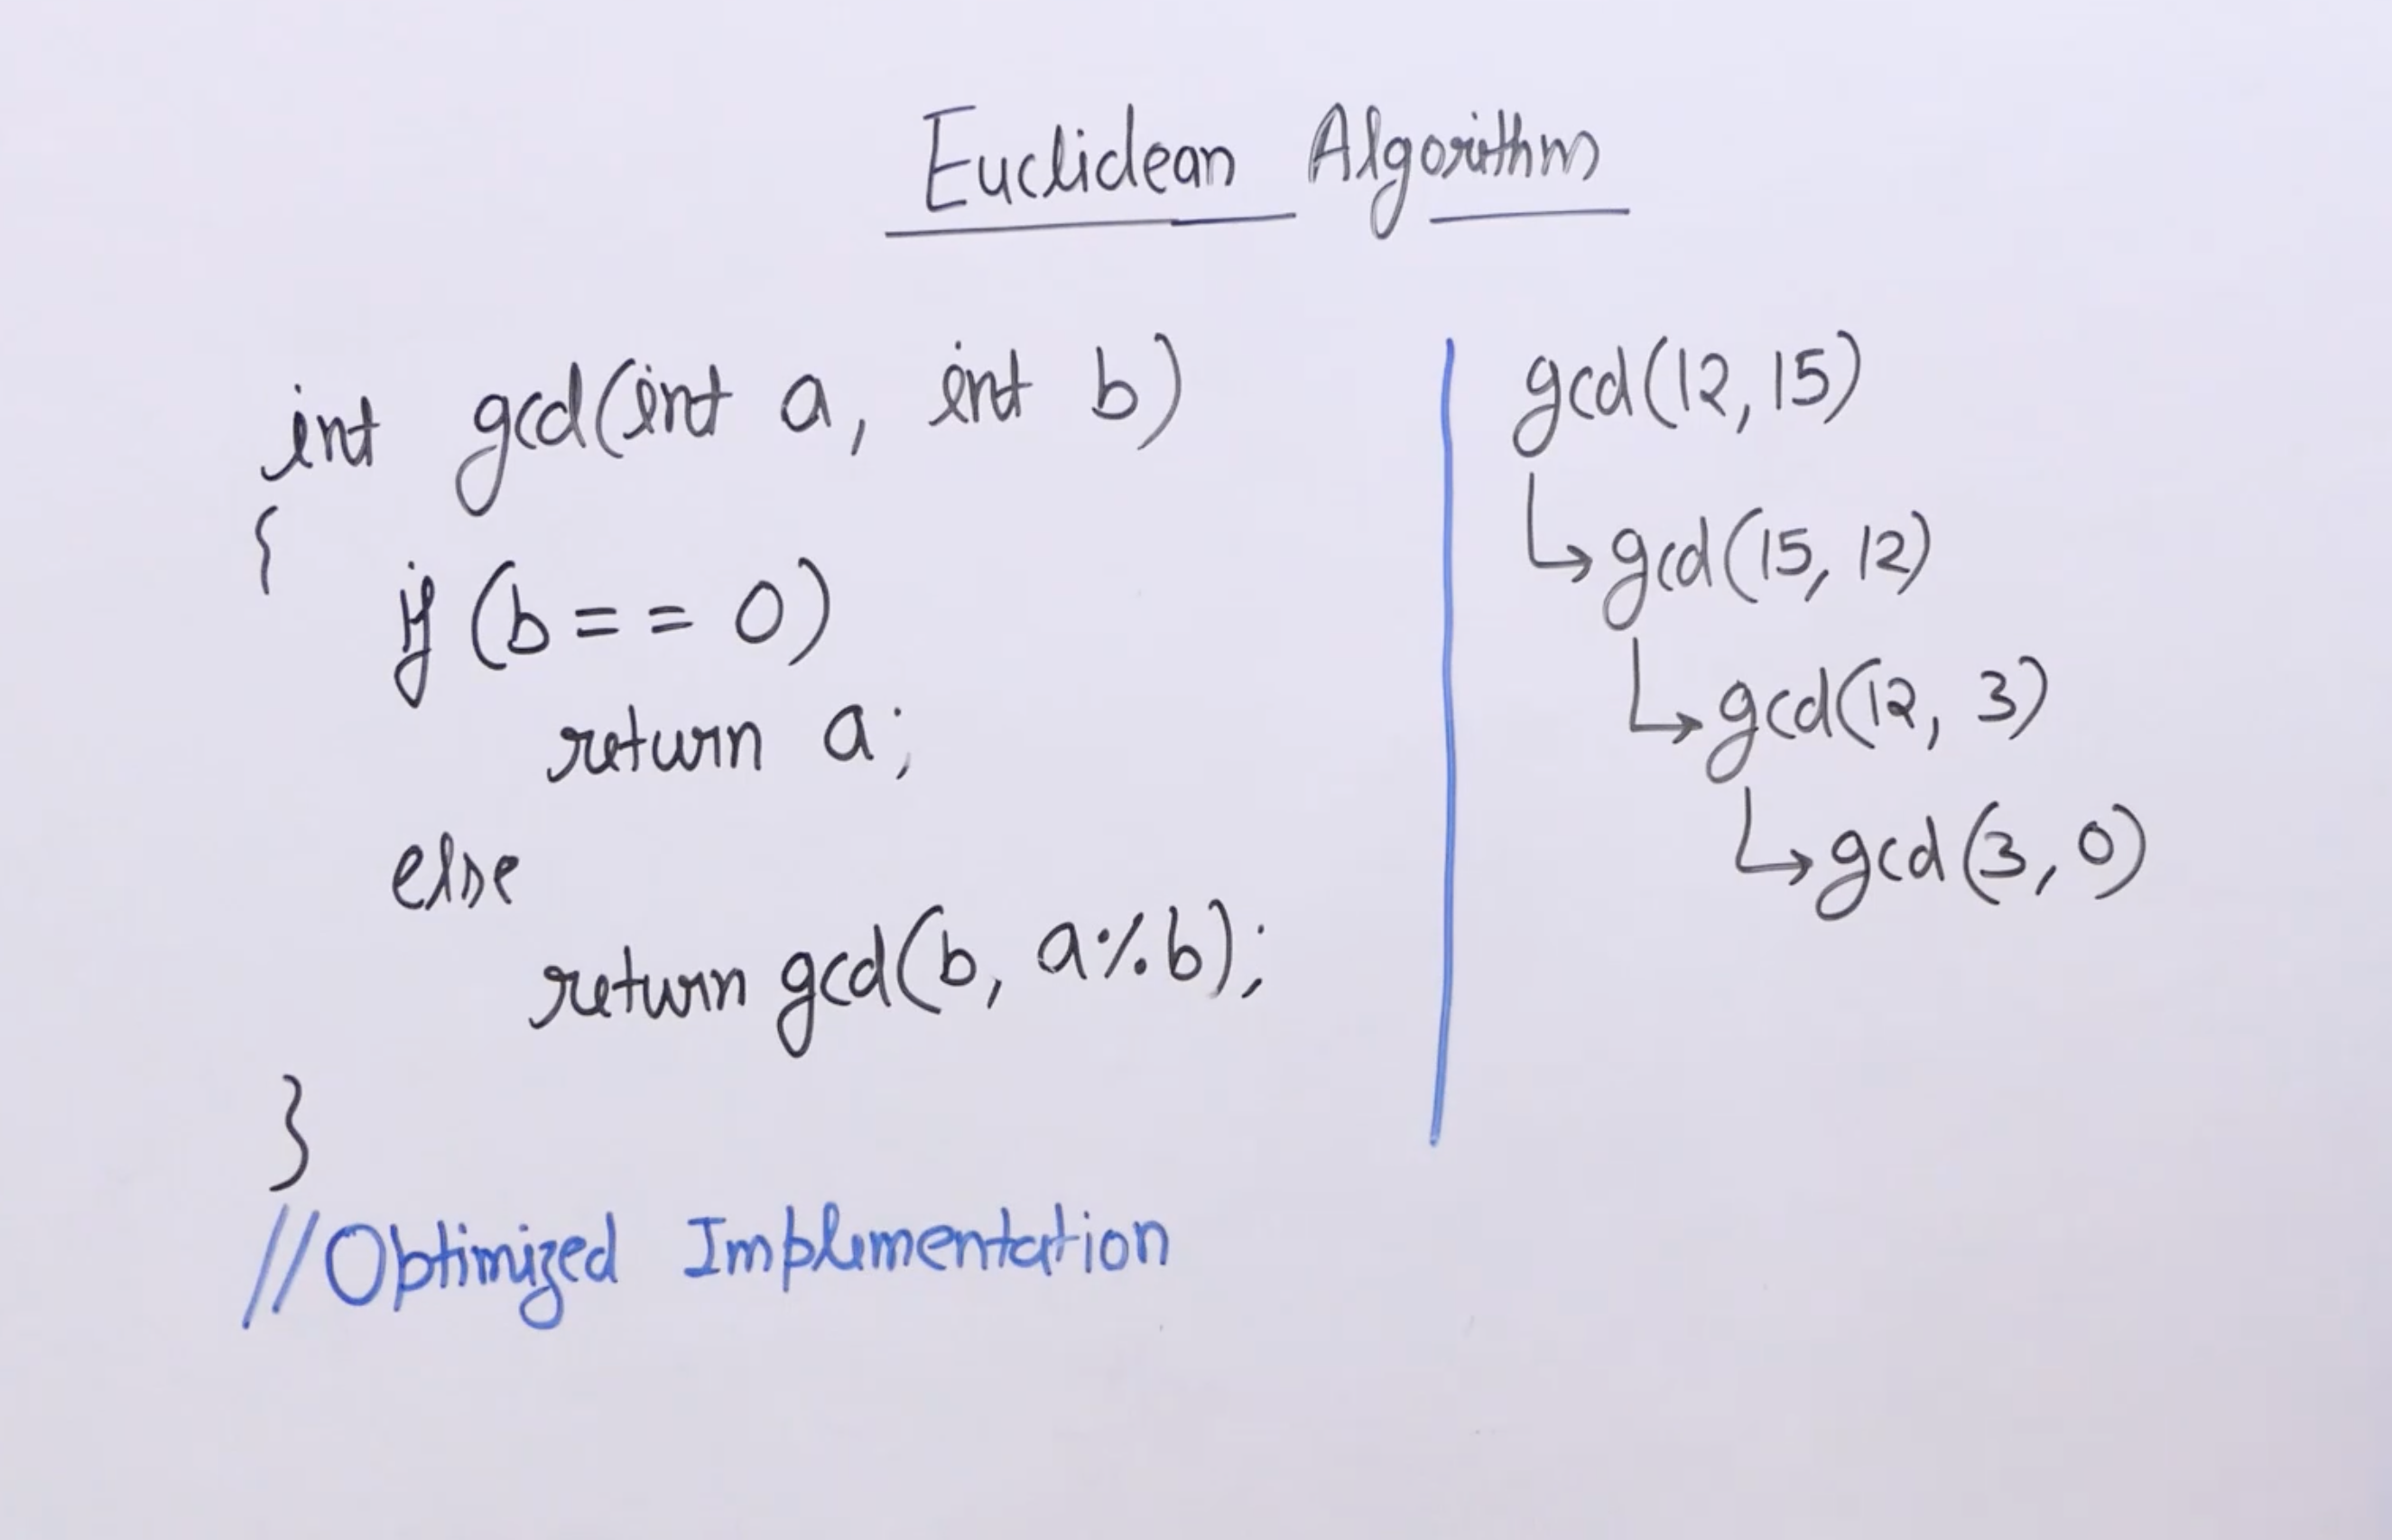 Euclidean Algorithm
int gcd(int a, int b)
{
if (b == 0)
return a;
else
return gcd(b, a%b);
}
//Optimized Implementation
gcd(12,15)
↳gcd(15, 12)
↳gcd(12, 3)
↳gcd(3, 0)